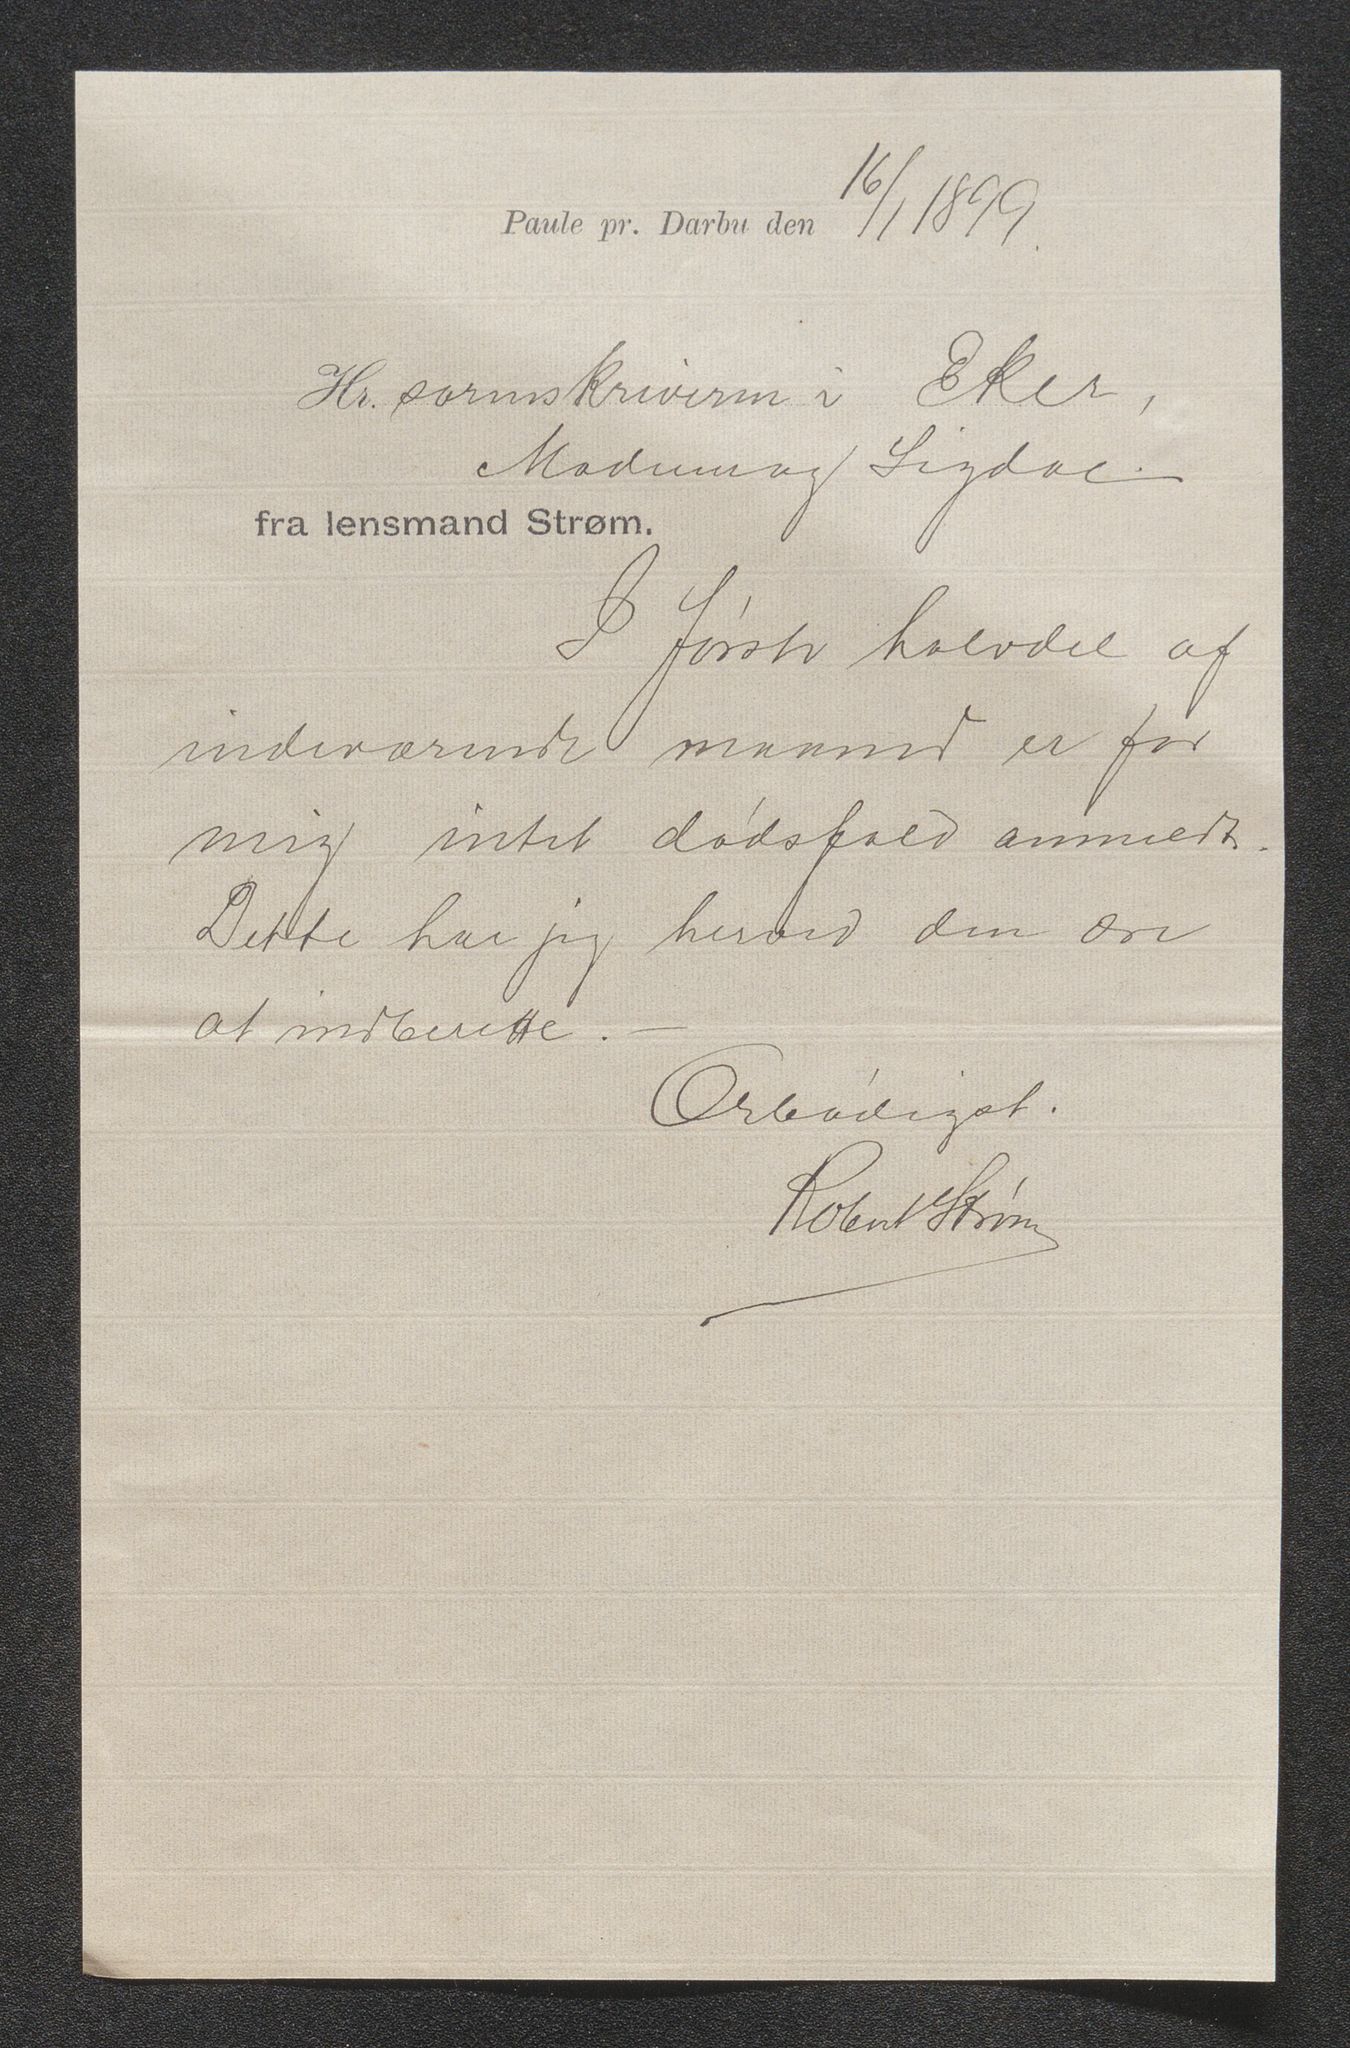 Paule pr. Darbu den 16/1 1899.
Hr. sorenskriveren i Eker,
Modum og Sigdal.
fra lensmand Strøm.
I første halvdel af
indeværende maaned er for
mig intet dødsfald anmeldt.
Dette har jeg herved den ære
at indberette. —
Ærbødigst.
Robert Strøm